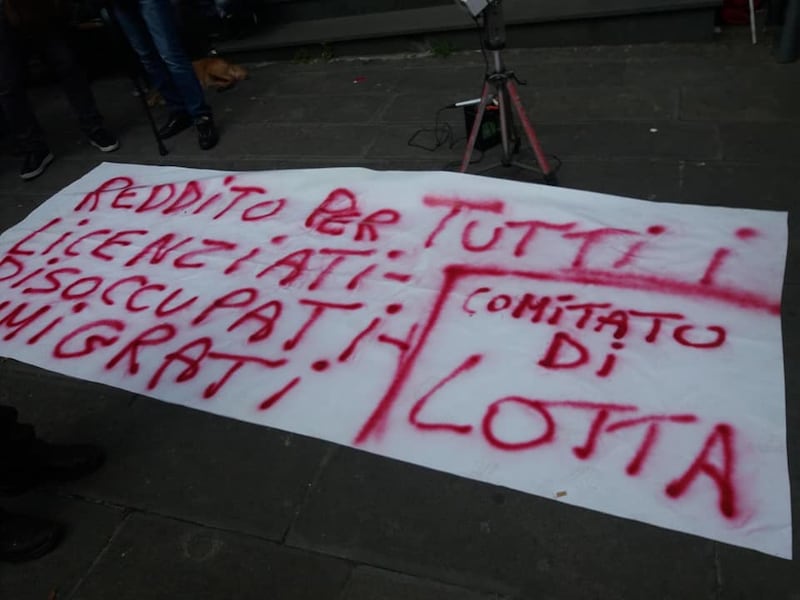 REDDITO PER TUTTI i
LICENZIATI-
DISOCCUPATI-
IMIGRATI
COMITATO
DI
LOTTA